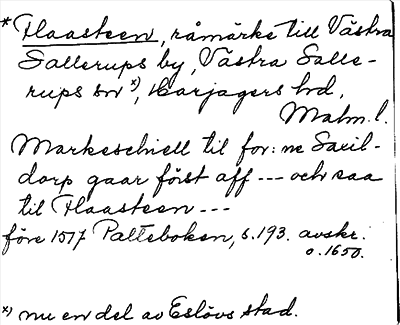 * Haasteen, råmärke till Västra
Sallerups by, Västra Salle-
rups sn x), Harjagers hd,
Malm. l.
Markeschiell til for: ne Saxil-
dorp gaar först aff --- och saa
til Haasteen ---
före 1517 Palteboken, s. 193. avskr.
o. 1650.
x) nu en del av Eslövs stad.